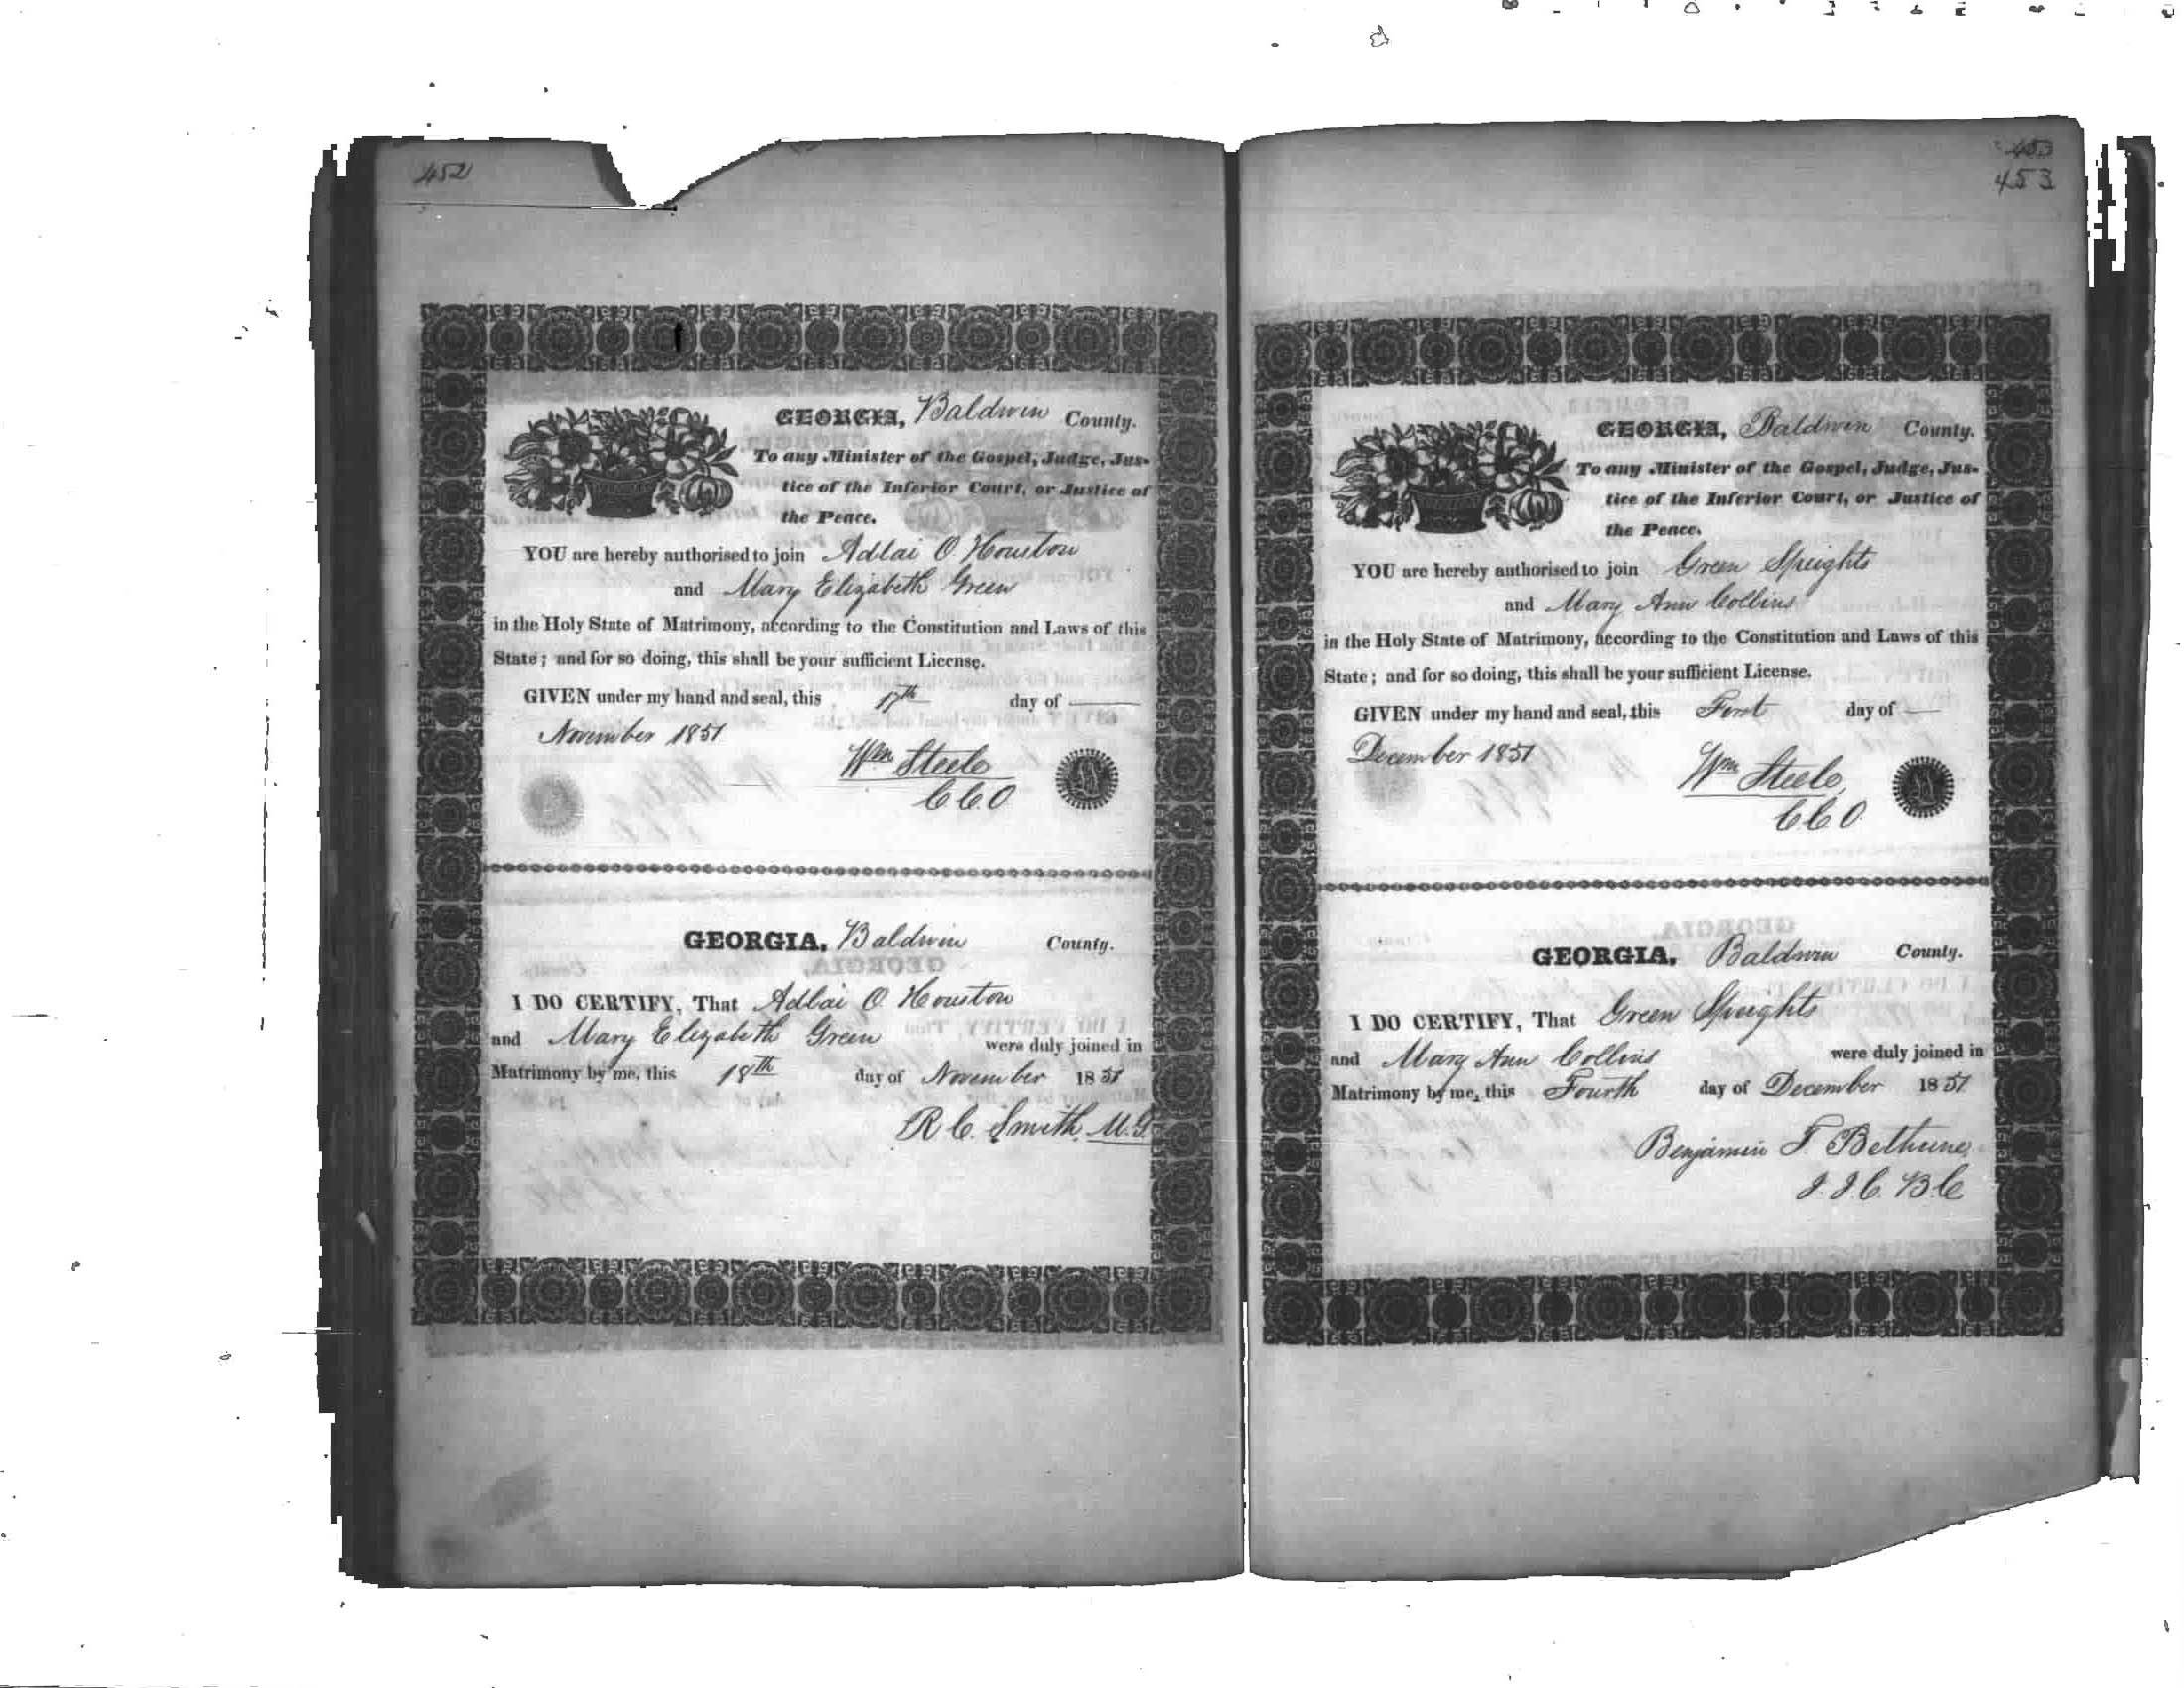 452
GEORGIA, Baldwin County.
To any Minister of the Gospel, Judge, Jus-
tice of the Inferior Court, or Justice of
the Peace.
YOU are hereby authorised to join Adlai O. Houston
and Mary Elizabeth Green
in the Holy State of Matrimony, according to the Constitution and Laws of this
State; and for so doing, this shall be your sufficient License.
GIVEN under my hand and seal, this 17th day of
November 1851
Wm Steele
C C O
GEORGIA, Baldwin County.
I DO CERTIFY, That Adlai O Houston
and Mary Elizabeth Green were duly joined in
Matrimony by me, this 18th day of November 1851
R C. Smith, M.G
453
GEORGIA, Baldwin County.
To any Minister of the Gospel, Judge, Jus-
tice of the Inferior Court, or Justice of
the Peace.
YOU are hereby authorised to join Green Speights
and Mary Ann Collins
in the Holy State of Matrimony, according to the Constitution and Laws of this
State; and for so doing, this shall be your sufficient License.
GIVEN under my hand and seal, this First day of
December 1851
Wm Steele
C C O
GEORGIA, Baldwin County.
I DO CERTIFY, That Green Speights
and Mary Ann Collins were duly joined in
Matrimony by me, this Fourth day of December 1851
Benjamin T Bethune
J. I. C. B. C